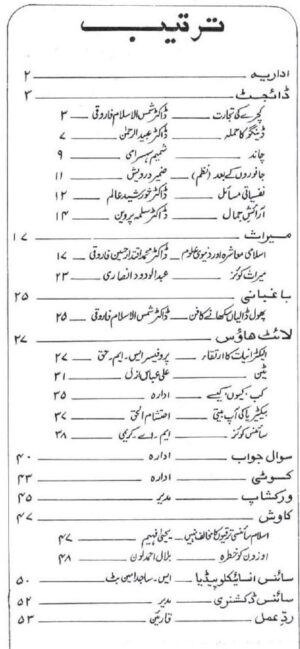 ترتیب
اداریہ ۲
ڈائجسٹ ۳
کچرے کی تجارت ڈاکٹر شمس الاسلام فاروقی ۳
ڈینگو کا حملہ ڈاکٹر عبدالرحمٰن ۷
چاند شمیم سہسرامی ۹
جانوروں کے بعد (نظم) ضمیر درویش ۱۱
نفسیاتی مسائل ڈاکٹر خورشید عالم ۱۲
آرائش جمال ڈاکٹر سلمہ پروین ۱۴
میراث ۱۷
اسلامی معاشرہ اور دنیوی علوم ڈاکٹر محمد اقتدار حسین فاروقی ۱۷
میراث کوئز عبدالودود انصاری ۲۳
باغبانی ۲۵
پھول ڈالیاں سکھانے کا فن ڈاکٹر شمس الاسلام فاروقی ۲۵
لائٹ ھاؤس ۲۷
الیکٹرانیات کا ارتقار پروفیسر ایس۔ ایم۔ حق ۲۷
ٹین علی عباس ازل ۳۱
کب، کیوں، کیسے ادارہ ۳۵
بیکٹیریا کی آپ بیتی احتشام الحق ۳۷
سائنس کوئز ایم۔ اے۔ کریمی ۳۸
سوال جواب ادارہ ۴۰
کسوٹی ادارہ ۴۳
ورکشاپ مدیر ۴۵
کاوش ۴۷
اسلام سائنسی ترقیوں کا مخالف نہیں یحییٰ فہیم ۴۷
اوزون کو خطرہ بلال احمد لون ۴۸
سائنس انسائیکلوپیڈیا ایس۔ ساجد امین بٹ ۵۰
سائنس ڈکشنری مدیر ۵۲
ردِّ عمل قارئین ۵۳